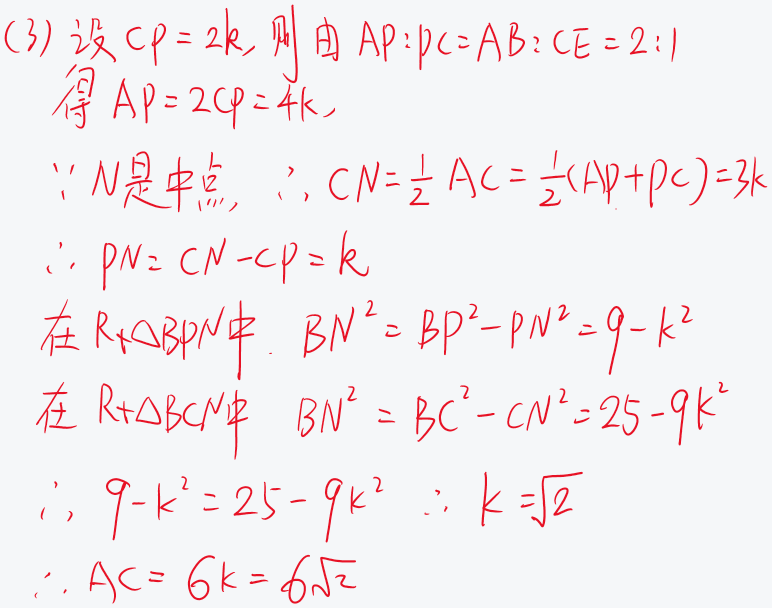 (3) 设 CP=2k, 则由 AP:PC=AB:CE=2:1
得 AP=2CP=4k,
∵ N是中点, ∴ CN=\frac{1}{2} AC=\frac{1}{2}(AP+PC)=3k
∴ PN=CN-CP=k
在 Rt△BPN中. BN²=BP²-PN²=9-k²
在 Rt△BCN中 BN²=BC²-CN²=25-9k²
∴ 9-k²=25-9k² ∴ k=√2
∴ AC=6k=6√2